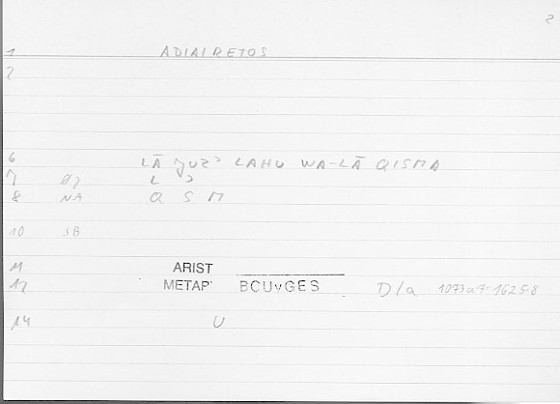 2
1 ADIAIRETOS
2
6 LĀ ǦUZʾ LAHU WA-LĀ QISMA
7 L ʾ
8 NA Q S M
10 SB
11 ARIST
12 METAP BCUvGES D/a 1073a7 1625.8
14 U